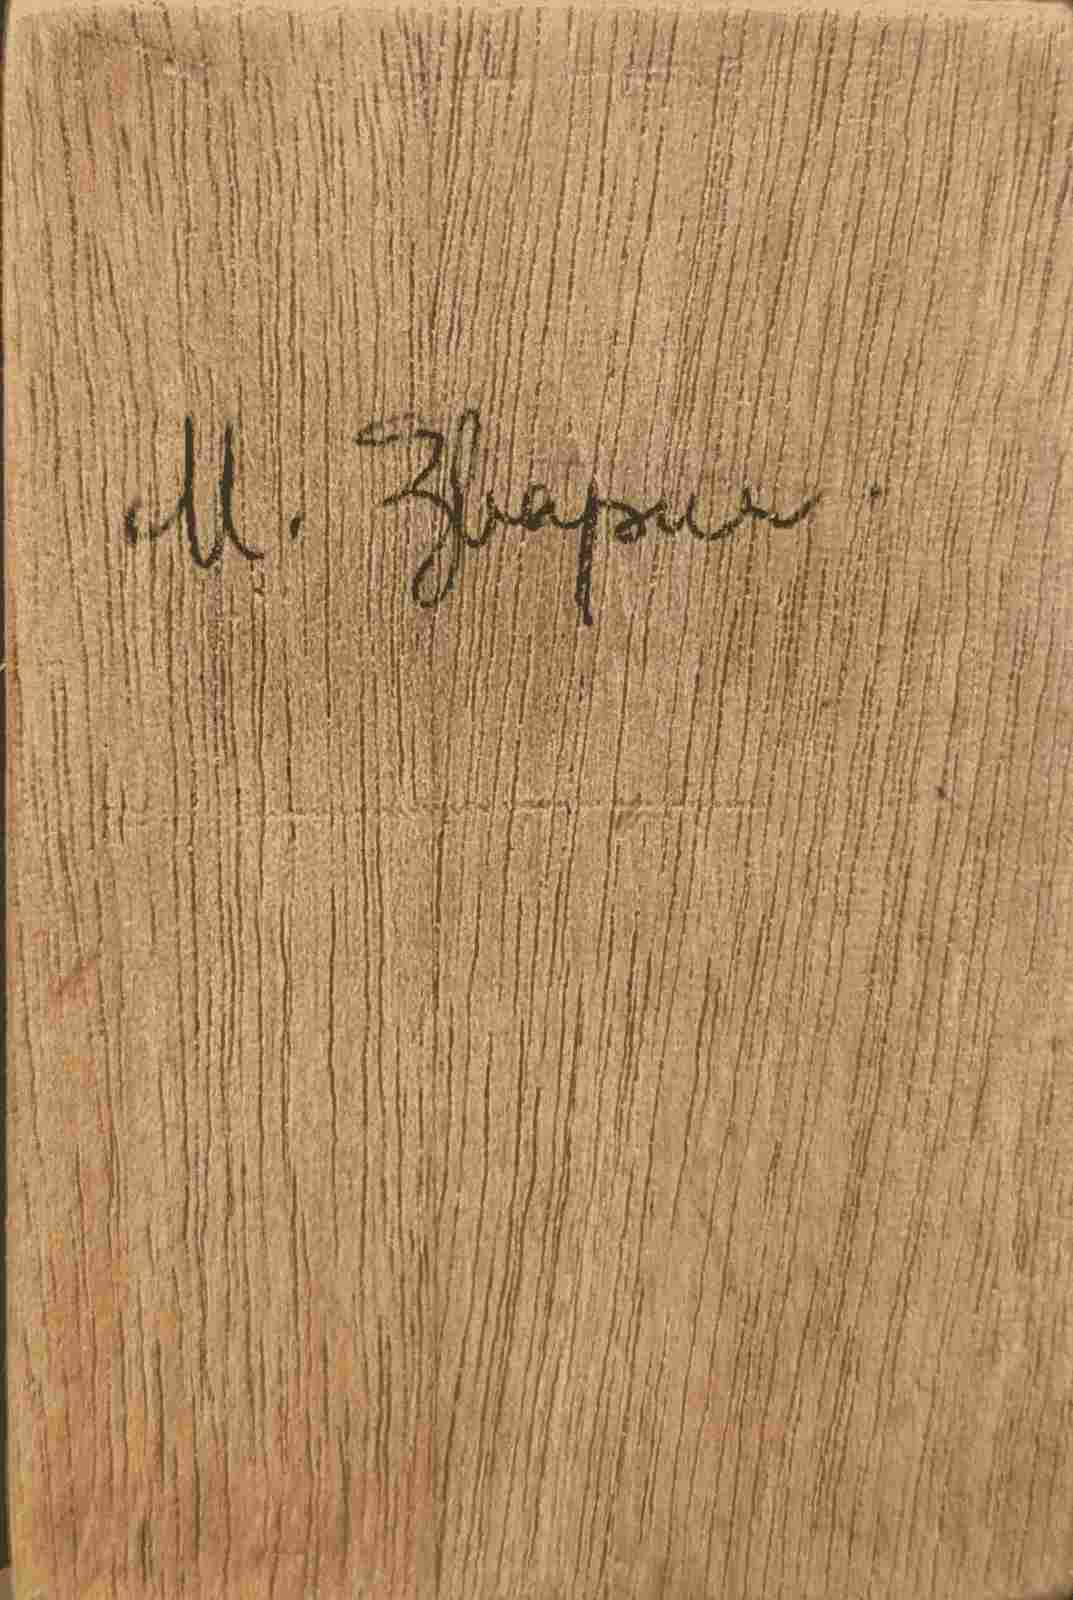 М. Зварич.